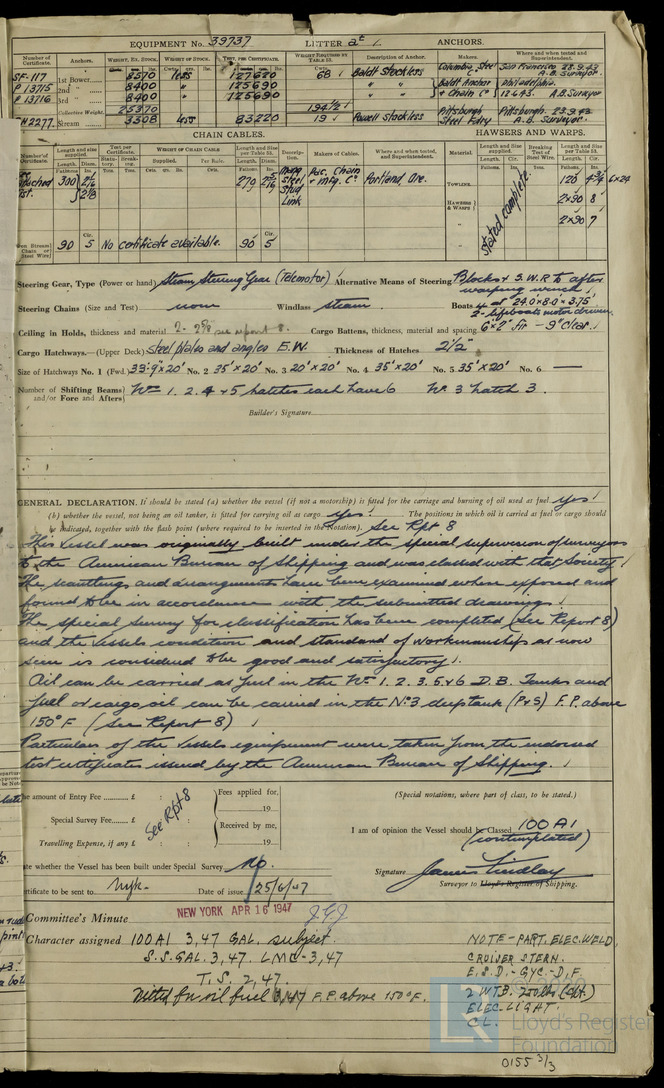 EQUIPMENT No. 39737 LETTER at ANCHORS.
Number of Certificate. Anchors. Weight, Ex. Stock. Weight of Stock. Test, per Certificate. Weight Required by Table 53. Description of Anchor. Makers. Where and when tested and Superintendent.
SF-117 1st Bower 8570 less 127620 68 Baldt Stockless Columbia Steel Co San Francisco 28.9.43 A.B. Surveyor.
P 13715 2nd " 8400 " 125690 " " Baldt Anchor Philadelphia.
P 13716 3rd " 8400 " 125690 " " & Chain Co 12.6.43. A.B. Surveyor
Collective Weight 25370 194½
H2277. Stream 3508 less 83220 19 Powell Stockless Pittsburgh Steel Fdry Pittsburgh. 23.9.43 A.B. Surveyor.
CHAIN CABLES. HAWSERS AND WARPS.
Number of Certificate. Length and size supplied. Test per Certificate. Weight of Chain Cable. Length and Size per Table 53. Description. Makers of Cables. Where and when tested, and Superintendent. Material. Length and Size supplied. Breaking Test of Steel Wire. Length and Size per Table 53.
Length. Diam. Statutory. Breaking. Supplied. Per Rule. Length. Diam.
300 2 5/16 270 2 5/16 Steel Stud Link Pac. Chain & Mfg. Co Portland Ore. Towline 120 6x24
Hawsers & Warps 2x90 8
" 2x90 7
stated complete.
90 5 No certificate available. 90 5
Steering Gear, Type (Power or hand) Steam Steering Gear (Telemotor) Alternative Means of Steering Blocks & S.W.R to after warping winch
Steering Chains (Size and Test) none Windlass steam Boats 4 at 24.0'x8.0'x3.75' 2-lifeboats motor driven
Ceiling in Holds, thickness and material see report 8. Cargo Battens, thickness, material and spacing 6"x2" fir - 9" clear.
Cargo Hatchways.—(Upper Deck) Steel plates and angles E.W. Thickness of Hatches 2½"
Size of Hatchways No. 1 (Fwd.) 33'-9"x20' No. 2 35'x20' No. 3 20'x20' No. 4 35'x20' No. 5 35'x20' No. 6 —
Number of Shifting Beams and/or Fore and Afters No 1. 2. 4 & 5 hatches each have 6 No. 3 hatch 3.
Builder's Signature
GENERAL DECLARATION. It should be stated (a) whether the vessel (if not a motorship) is fitted for the carriage and burning of oil used as fuel. yes
(b) whether the vessel, not being an oil tanker, is fitted for carrying oil as cargo yes. The positions in which oil is carried as fuel or cargo should
be indicated, together with the flash point (where required to be inserted in the Notation). See Rpt 8
This Vessel was originally built under the special supervision of surveyors
to the American Bureau of Shipping and was classed with that Society.
The scantlings and arrangements have been examined where exposed and
found to be in accordance with the submitted drawings.
The special survey for classification has been completed (See Report 8)
and the Vessels condition and standard of workmanship as now
seen is considered to be good and satisfactory.
Oil can be carried as fuel in the Nos 1. 2. 3. 5 & 6 D.B. Tanks and
fuel or cargo oil can be carried in the No 3 deep tank (P & S) F.P. above
150°F (See Report 8)
Particulars of the Vessels equipment were taken from the endorsed
test certificates issued by the American Bureau of Shipping.
The amount of Entry Fee £ : : Fees applied for, 19 (Special notations, where part of class, to be stated.)
Special Survey Fee £ : : See Rpt 8 Received by me,
Travelling Expense, if any £ : : 19
I am of opinion the Vessel should be Classed 100A1
(contemplated)
State whether the Vessel has been built under Special Survey No.
Signature James Lindlay
Certificate to be sent to Nyk. Date of issue 25/6/47 Surveyor to Lloyd's Register of Shipping.
NEW YORK APR 16 1947
Committee's Minute
Character assigned 100A1 3,47 GAL. subject.
S.S. GAL. 3,47. LMC-3,47
T.S. 2,47.
Noted for oil fuel 3,47 F.P. above 150°F.
NOTE-PART. ELEC. WELD.
CRUISER STERN.
E.S.D.-GYC-D.F.
2 WTB. 250 lbs
ELEC. LIGHT.
CL.
Lloyd's Register
Foundation
0155 3/3